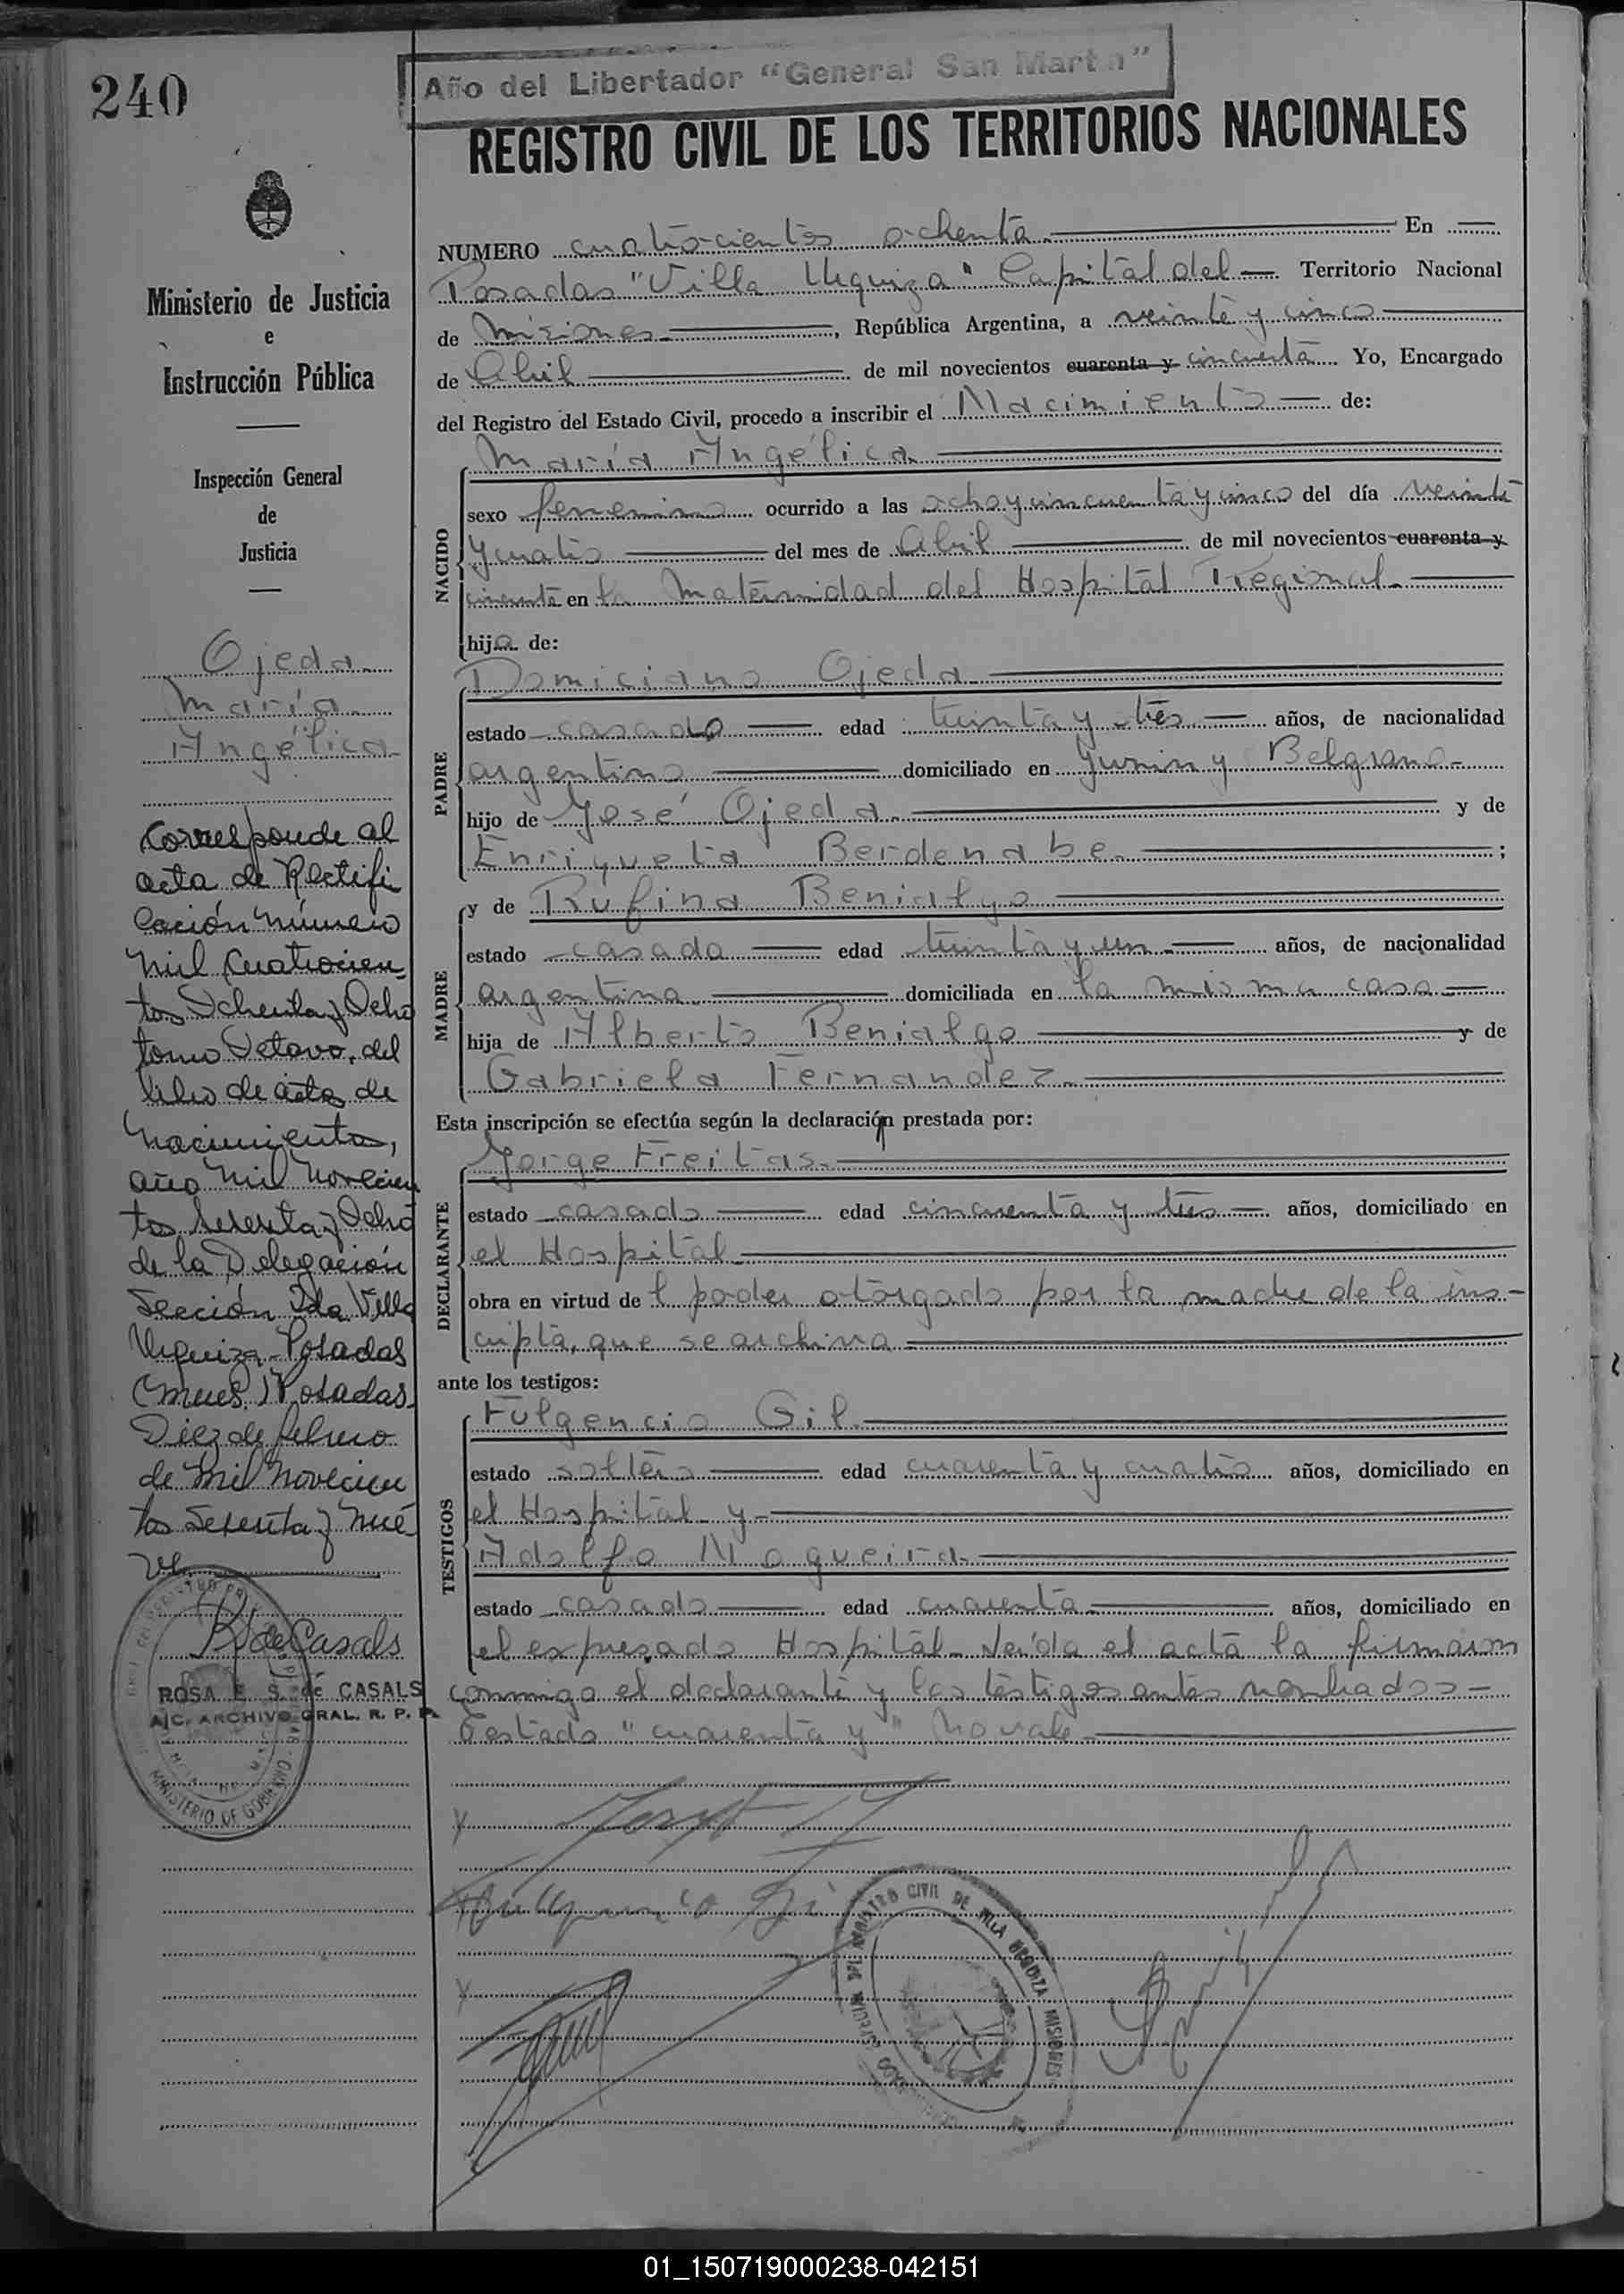 240
Año del Libertador "General San Martín"
REGISTRO CIVIL DE LOS TERRITORIOS NACIONALES
Ministerio de Justicia
e
Instrucción Pública
Inspección General
de
Justicia
Ojeda
María
Angélica
Corresponde al
acta de Rectifi
cación número
mil cuatrocien
tos Ochenta y Ocho
tomo Octavo, del
libro de actas de
Nacimientos,
año mil novecien
tos sesenta y Ocho
de la Delegación
Sección 2da Villa
Urquiza - Posadas
(Mnes.) Posadas
Diez de febrero
de mil novecien
tos sesenta y nue
ve
R S de Casals
ROSA E. S. de CASALS
A/C. ARCHIVO GRAL. R. P. P.
MINISTERIO DE GOBIERNO
NUMERO cuatrocientos ochenta. En
Posadas "Villa Urquiza" Capital del Territorio Nacional
de Misiones, República Argentina, a veinte y cinco
de Abril de mil novecientos cuarenta y cincuenta Yo, Encargado
del Registro del Estado Civil, procedo a inscribir el Nacimiento de:
NACIDO
María Angélica
sexo femenino ocurrido a las ocho y cincuenta y cinco del día veinte
y cuatro del mes de Abril de mil novecientos cuarenta y
cincuenta en la Maternidad del Hospital Regional.
hija de:
PADRE
Domiciano Ojeda
estado casado edad treinta y tres años, de nacionalidad
argentino domiciliado en Junin y Belgrano
hijo de José Ojeda y de
Enriqueta Berdenabe ;
MADRE
y de Rufina Benialgo
estado casada edad treinta y un años, de nacionalidad
argentina domiciliada en la misma casa
hija de Alberto Benialgo y de
Gabriela Fernandez
Esta inscripción se efectúa según la declaración prestada por:
DECLARANTE
Jorge Freitas
estado casado edad cincuenta y tres años, domiciliado en
el Hospital
obra en virtud del poder otorgado por la madre de la ins-
cripta, que se archiva
ante los testigos:
TESTIGOS
Fulgencio Gil
estado soltero edad cuarenta y cuatro años, domiciliado en
el Hospital y
Adolfo Nogueira
estado casado edad cuarenta años, domiciliado en
el expresado Hospital. Leída el acta la firmaron
conmigo el declarante y los testigos antes nombrados
Testado "cuarenta y" No vale
Fulgencio Gil
REGISTRO CIVIL DE VILLA URQUIZA MISIONES
01_150719000238-042151